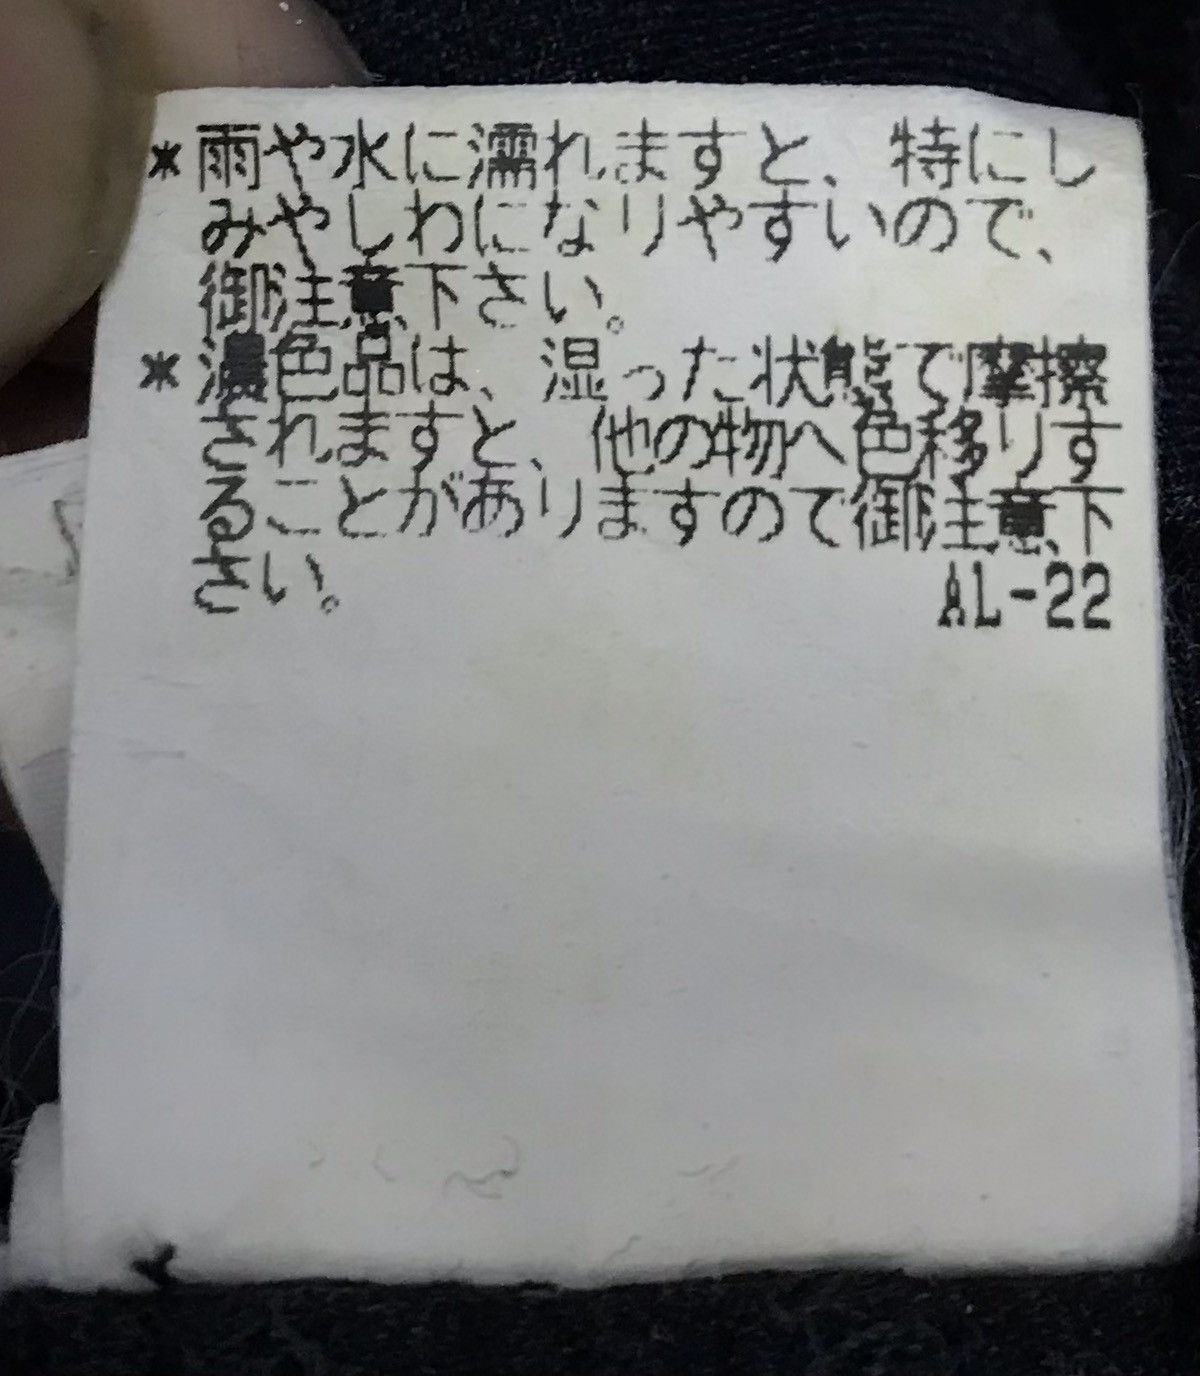 *雨や水に濡れますと、特にし
みやしわになりやすいので、
御注意下さい。
*濃色品は、湿った状態で摩擦
されますと、他の物へ色移りす
ることがありますので御注意下
さい。 AL-22